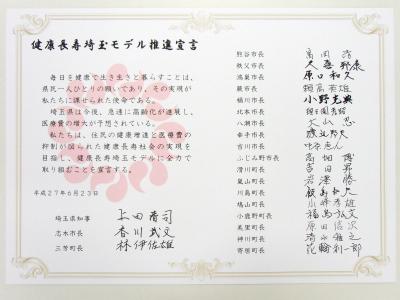 健康長寿埼玉モデル推進宣言
毎日を健康で生き生きと暮らすことは、
県民一人ひとりの願いであり、その実現が
私たちに課せられた使命である。
埼玉県は今後、急速に高齢化が進展し、
医療費の増大が予想されている。
私たちは、住民の健康増進と医療費の
抑制が図られた健康長寿社会の実現を
目指し、健康長寿埼玉モデルに全力で
取り組むことを宣言する。
平成27年6月23日
埼玉県知事 上田清司
志木市長 香川武文
三芳町長 林伊佐雄
熊谷市長 富岡清
秩父市長 久喜邦康
鴻巣市長 原口和久
蕨市長 頼高英雄
桶川市長 小野克典
北本市長
八潮市長 大山忍
幸手市長 渡辺邦夫
吉川市長
ふじみ野市長 高畑博
滑川町長 吉田昇
嵐山町長 岩澤勝
川島町長 飯島和夫
鳩山町長 小峰孝雄
小鹿野町長 福島弘文
美里町長 原田信次
神川町長 清水雅之
寄居町長 花輪利一郎